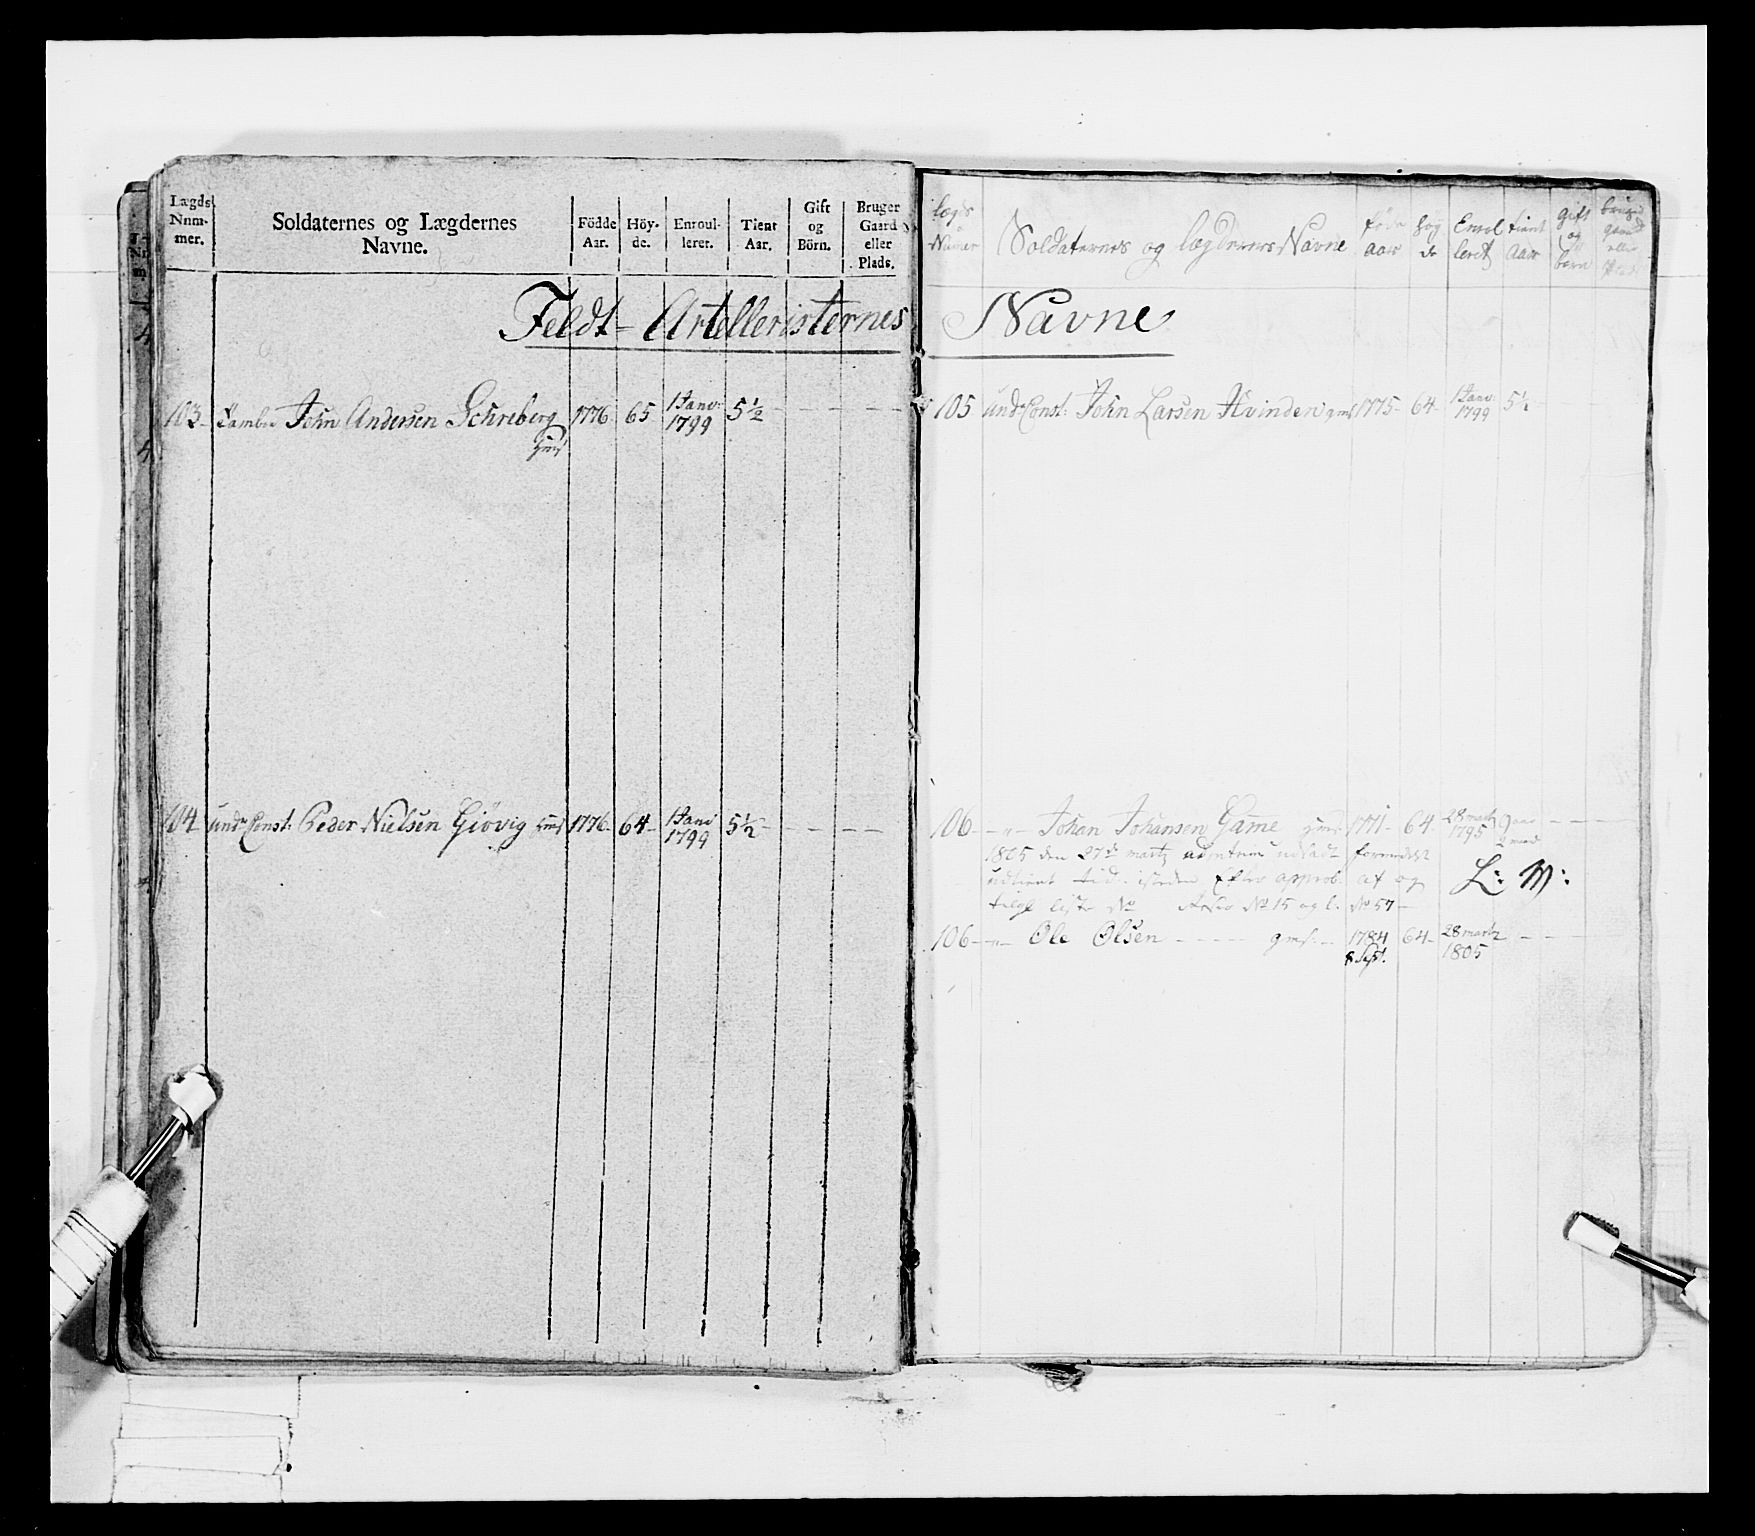 Lægds Num- mer. Soldaternes og Lægdernes Navne. Födde Aar. Höy- de. Enroul- lerer. Tient Aar. Gift og Börn. Bruger Gaard eller Plads.
Feldt- Artelleristernes
103 John Andersen Schreberg 1776 65 1 Janv: 1799 5½ - - - -
104 undr Const: Peder Nielsen Giövig 1776 64 1 Janv 1799 5½ - - - -
lægds Numer Soldaternes og lægdernes Navne föde aar höy de Enrol leret tient Aar gift og börn brug gaard eller
Navne
105 undr Const: John Larsen Hvinden gms 1775 64 1 Janv: 1799 5½
106 - " - Johan Johansen Game 1771 64 28 martz 1795 9 aar 2 mand
1805 den 27de martz udladt
udtient tid isteden Efter approb: af og L: M:
liste No No 15 og l. No 57
106 - " - Ole Olsen - - - - gms: 1784 64 28 martz 1805
8 Sept.